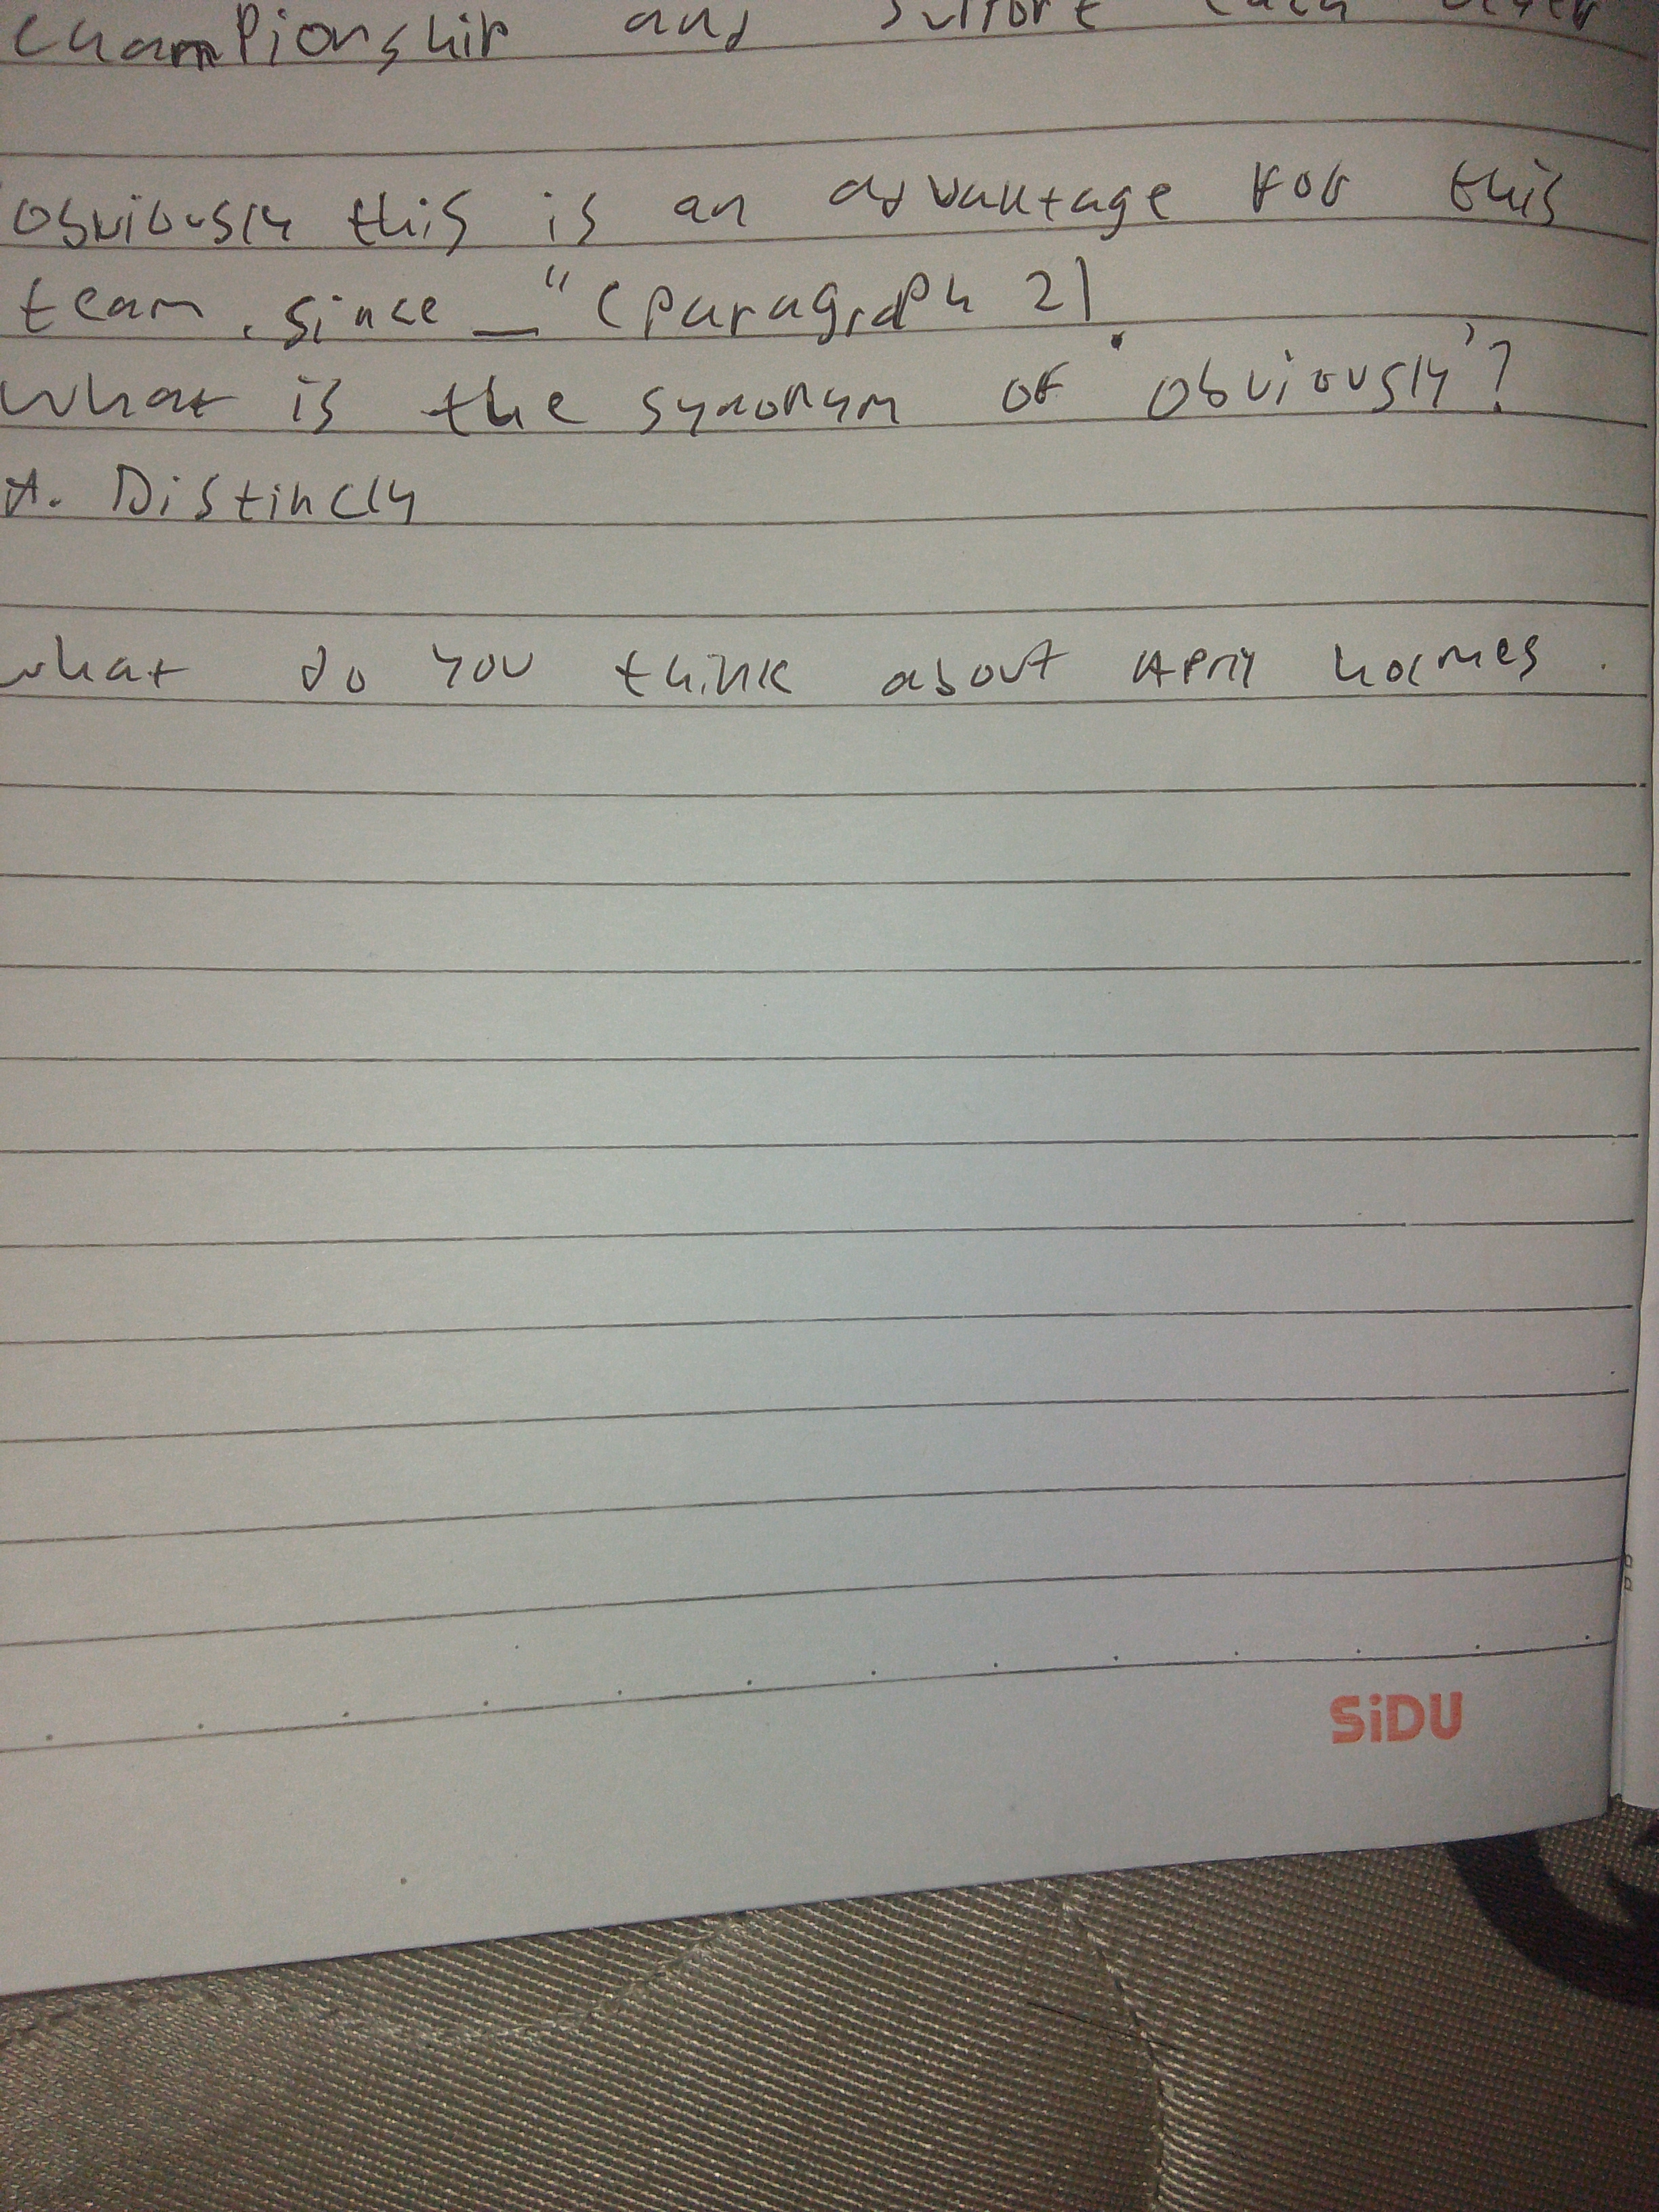 championship and support each other
obviously this is an advantage for this
team, since _" (paragraph 2).
What is the synonym of 'obviously'?
A. Distincly
what do you think about April holmes.
SiDU